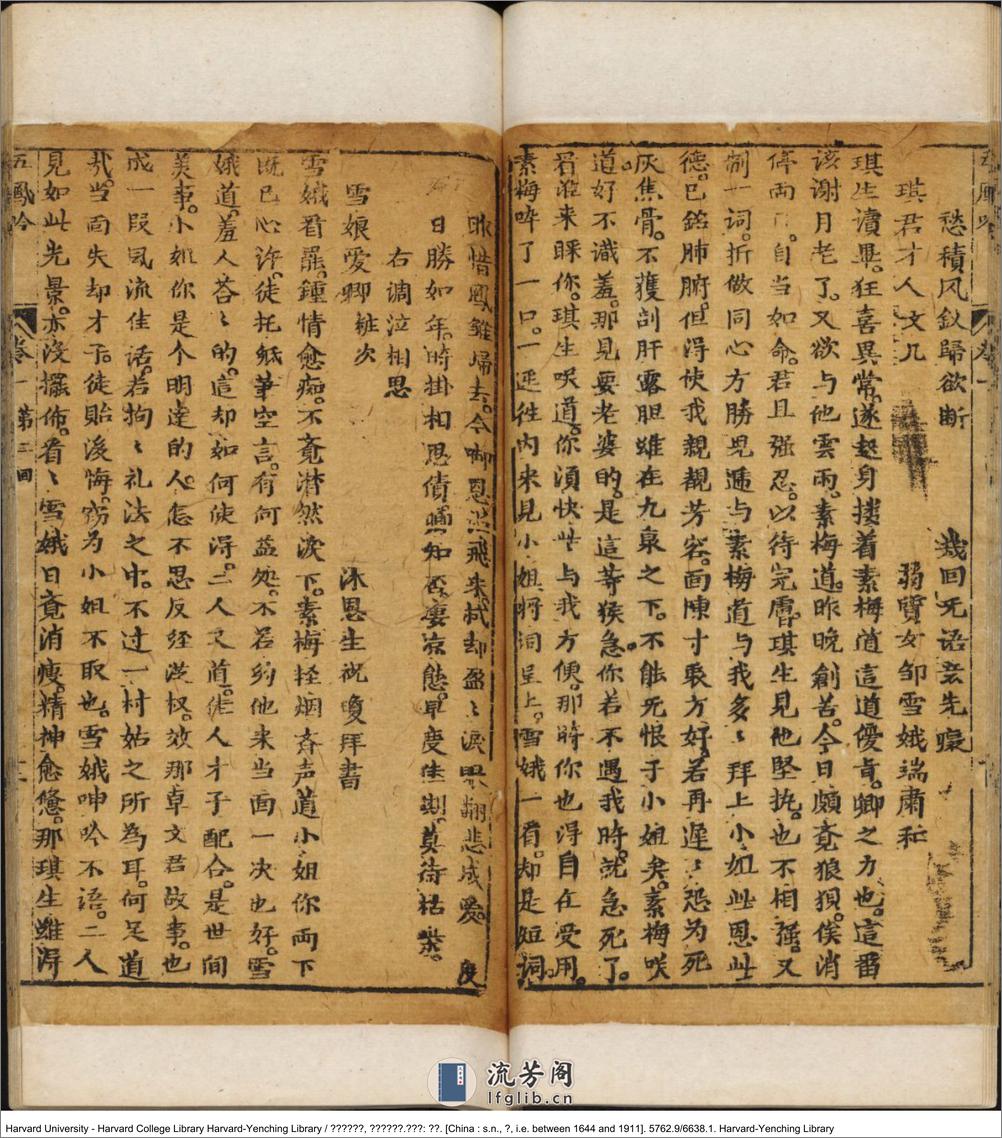 愁積风釵歸欲断　幾回无语芸先
琪君才人文几　弱質女邹雪娥端肅和
琪生讀畢。狂喜異常。遂起身搂着素梅道這道優肯。卿之力也。這畨
该謝月老了。又欲与他雲雨。素梅道。昨晚創苦。今日頗竟狼狽。俟消
停両日。自当如命。君且强忍。以待完膚。琪生見他堅执。也不相强。又
制一词。折做同心方勝児逓与素梅道与我多〻拜上小姐。此恩此
德。已銘肺腑。但得使我親親芳容。面陳寸衷方好。若再遅〻恐为死
灰焦骨。不獲剖肝露胆雖在九泉之下。不能无恨于小姐矣。素梅咲
道好不識羞。那見要老婆的。是這等猴急。你若不遇我時。就急死了。
看谁来睬你。琪生咲道。你須快些与我方便。那時你也得自在受用。
素梅啐了一口。一迳徃内来見小姐。將词呈上。雪娥一看。却是短词。
昨惜鳳雛歸去。今啣恩　飛来。拭却盈〻淚眼翻悲成爱。度
日勝如年。時掛相思債　知否凄凉態。早度佳期。莫待枯
右调泣相思
雪娘爱卿桩次　沐恩生祝瓊拜書
雪娥看罷。鍾情愈痴。不竟潸然淚下。素梅轻　声道小姐你両下
既已心许。徒托紙筆空言。有何益処。不若約他来当面一决也好。雪
娥道。羞人荅〻的。這却如何使得。　人又道。佳人才子配合。是世间
美事。小姐你是个明達的人。怎不思反经従权。效那卓文君故事。也
成一段风流佳话。若拘〻礼法之中。不过一村姑之所為耳。何足道
哉。当面失却才子。徒貽後悔。窃为小姐不取也。雪娥呻吟不语。二人
見如此光景。亦没擺佈。看〻雪娥日竟消瘦。精神愈倦。那琪生雖得
五鳳吟　卷一　第三回
流芳阁
lfglib.cn
Harvard University - Harvard College Library Harvard-Yenching Library / ??????, ??????.???: ??. [China : s.n., ?, i.e. between 1644 and 1911]. 5762.9/6638.1. Harvard-Yenching Library